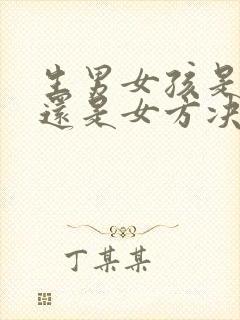 生男女孩是
還是女方决
丁某某